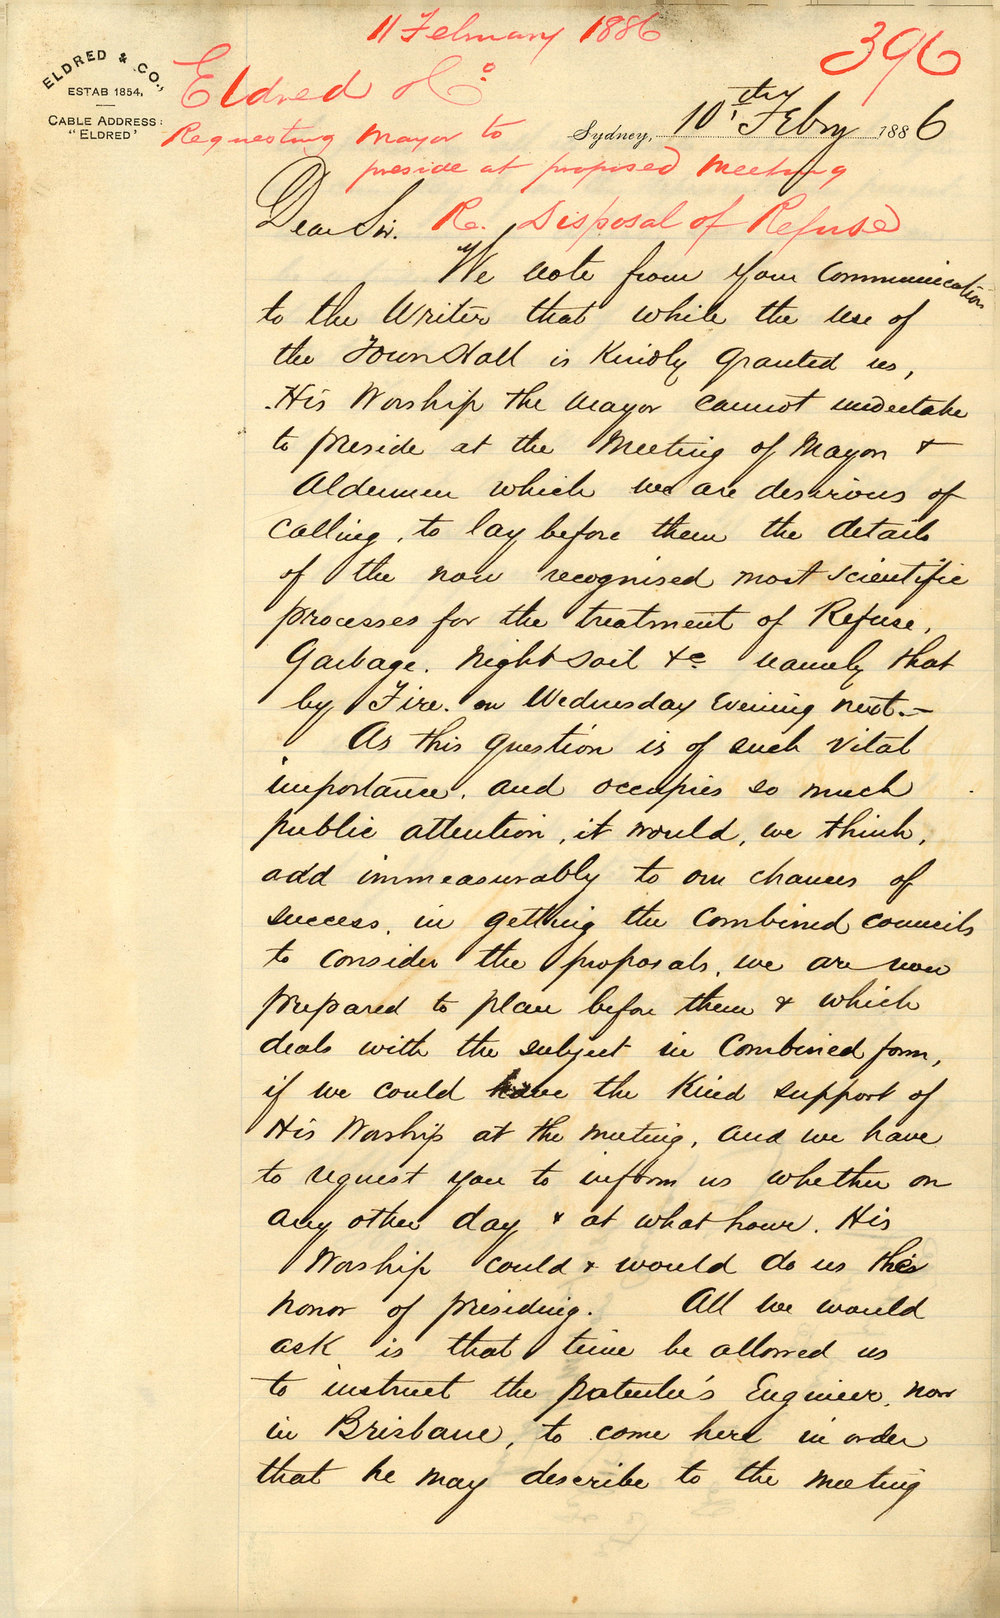 11 February 1886
396
ELDRED & CO.,
ESTAB 1854.
CABLE ADDRESS:
"ELDRED'
Eldred & Co
Requesting Mayor to
Sydney, 10th Febry 1886
preside at proposed Meeting
Dear Sir. Re. Disposal of Refuse
We note from your communication
to the Writer that while the use of
the Town Hall is Kindly granted us,
His Worship the Mayor cannot undertake
to preside at the Meeting of Mayors &
Aldermen which we are desirious of
calling, to lay before them the details
of the now recognised most scientific
processes for the treatment of Refuse,
Garbage. Nightsoil &c namely that
by Fire. on Wednesday Evening next.—
As this question is of such vital
importance, and occupies so much
public attention, it would, we think,
add immeasurably to our chances of
success, in getting the combined councils
to consider the proposals, we are now
prepared to place before them & which
deals with the subject in Combined form,
if we could have the Kind support of
His Worship at the meeting, and we have
to request you to inform us whether on
any other day & at what hour. His
Worship could & would do us the
honor of presiding. All we would
ask is that time be allowed us
to instruct the patentee's Engineer, now
in Brisbane, to come here in order
that he may describe to the meeting